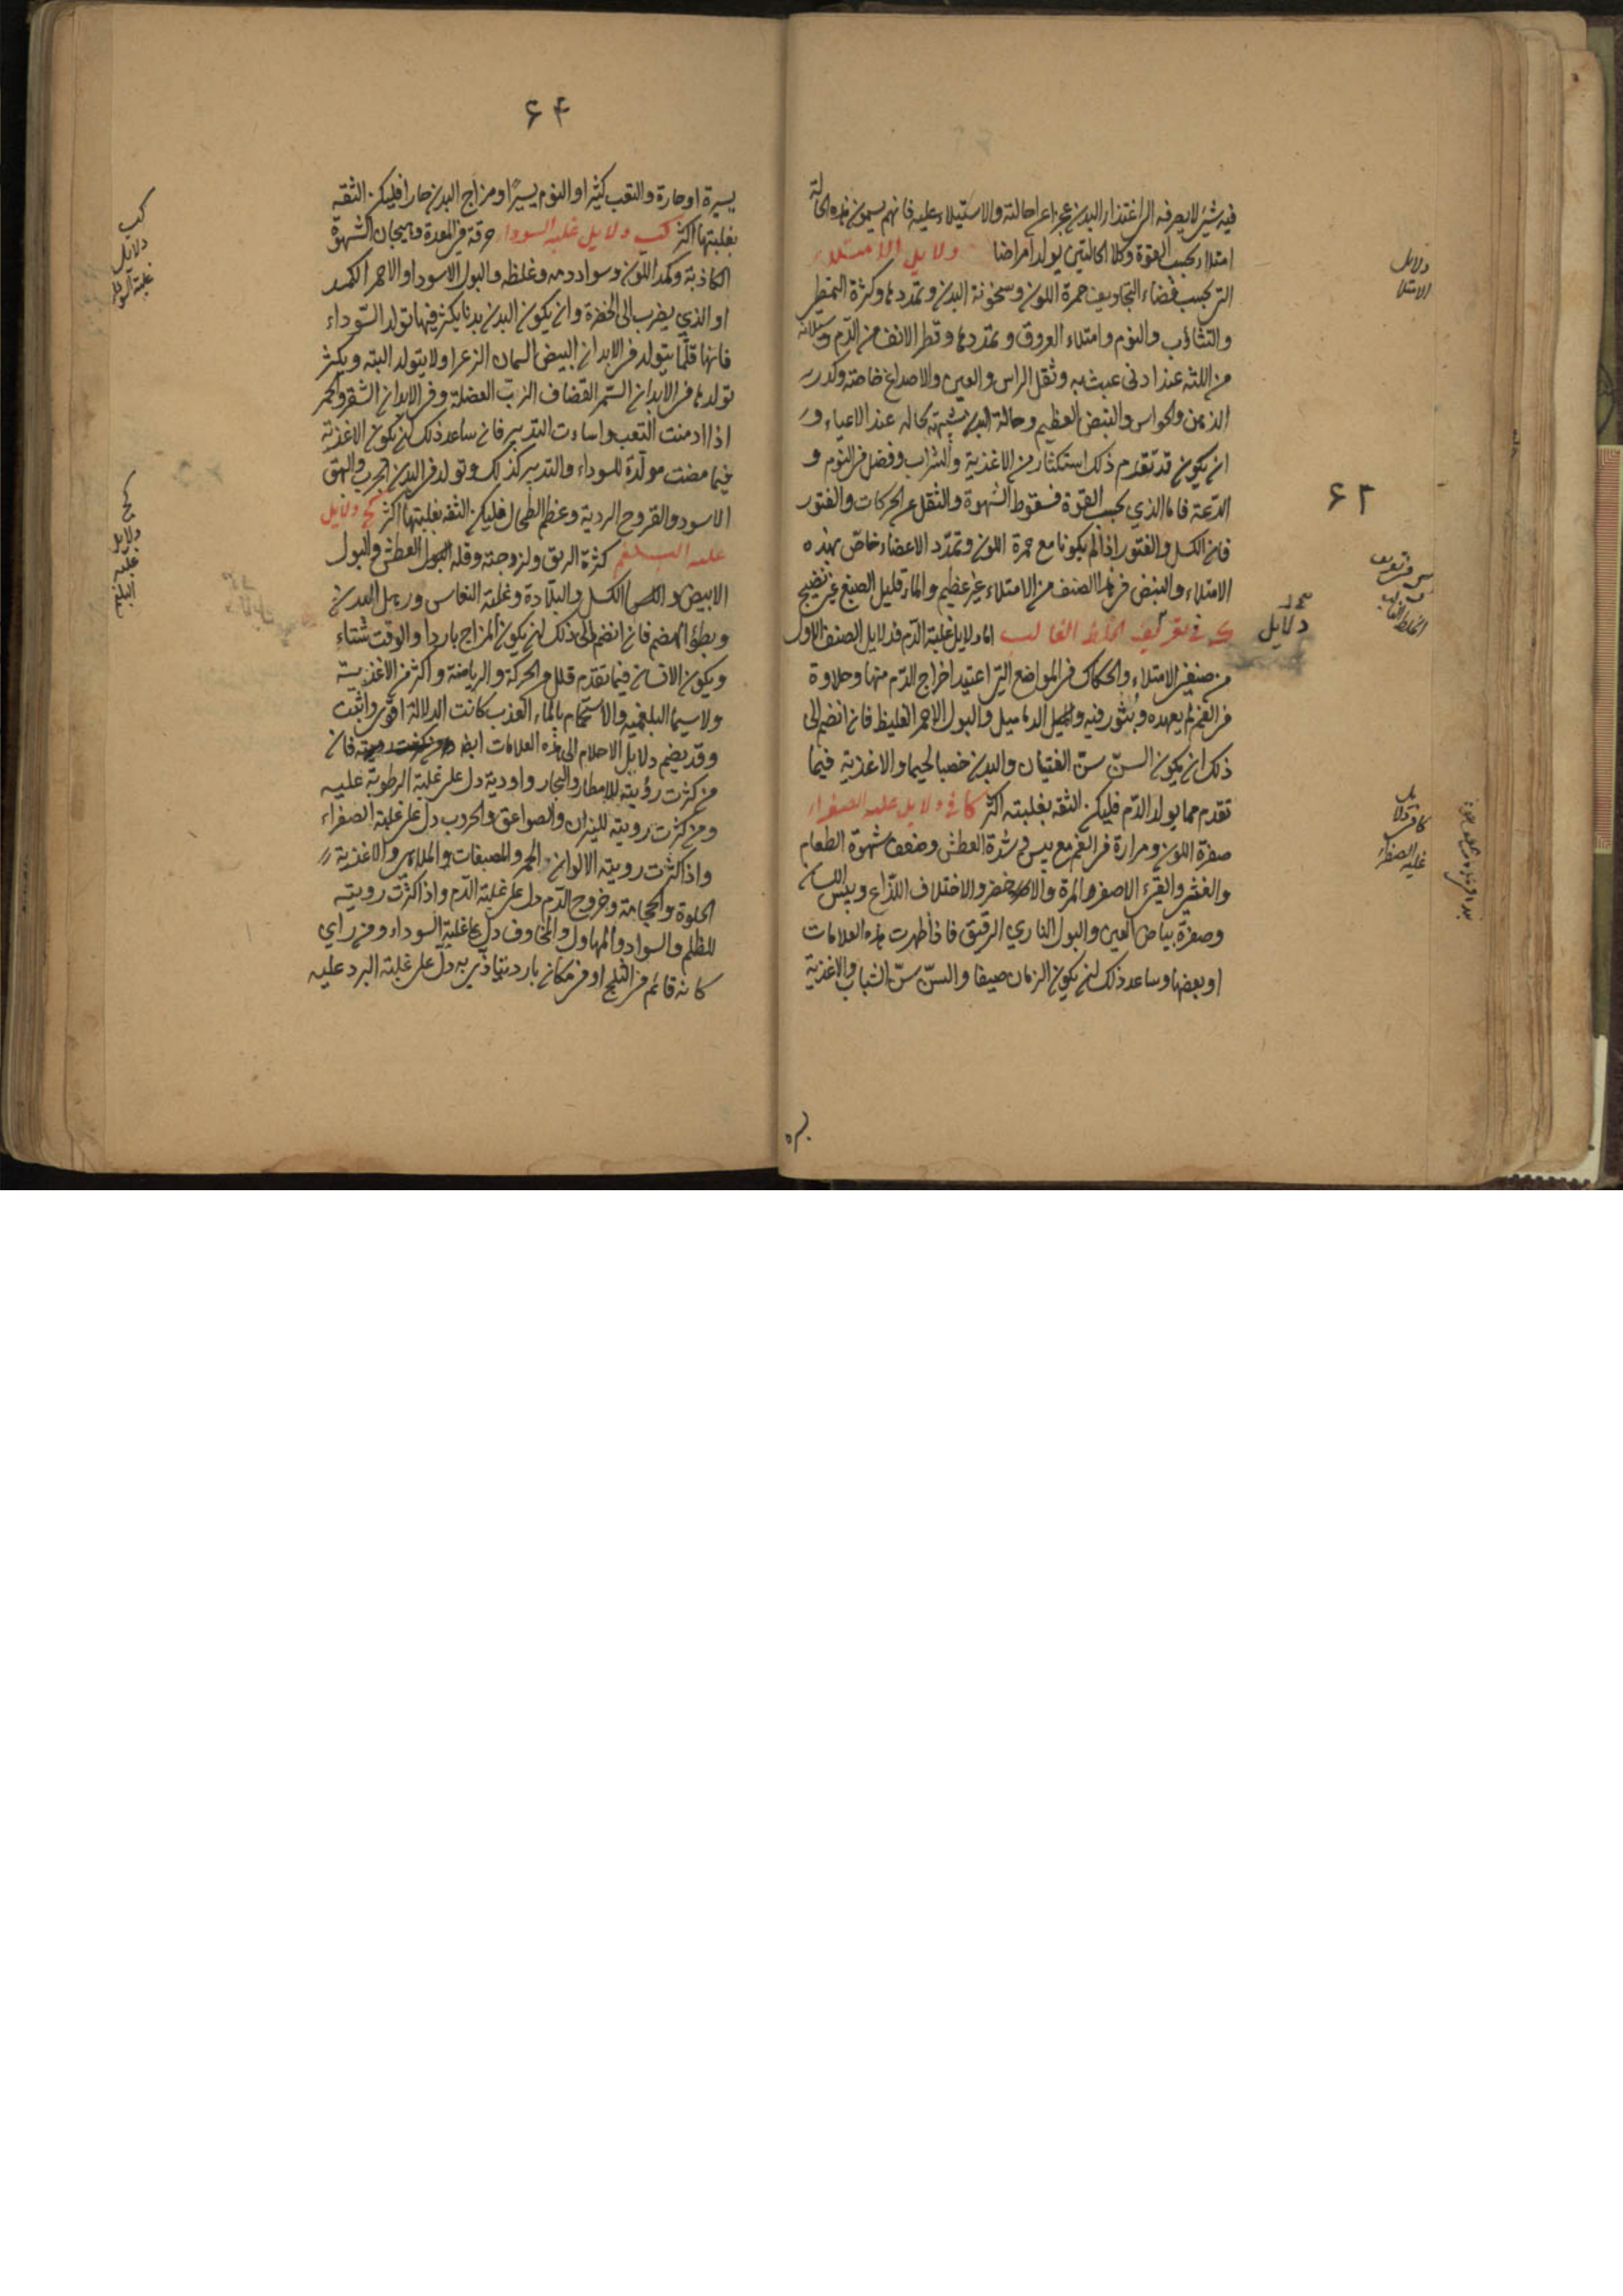 فيه شئ لا يصرفه الى اغتذاء البدن عجزا عن احالته والاستيلاء عليه فانهم يسمون هذه الحالة
امتلاء بحسب القوة وكلا الحالتين يولد امراضا دلايل الامتلاء
التى بحسب فضاء التجاويف حمرة اللون وسخونة البدن وتمددها وكثرة التمطى
والتثاؤب والنوم وامتلاء العروق وتمددها وقطر الانف من الدم وسيلانه
من اللثه عند ادنى عبث به وثقل الراس والعين والاصداغ خاصة وكدر
الذهن والحواس والنبض العظيم وحالة البدن شبيهة بحاله عند الاعياء و
ان يكون قد تقدم ذلك استكثار من الاغذية والشراب وفضل فى النوم و
الدعة فاما الذي بحسب القوة فسقوط الشهوة والثقل عن الحركات والفتور
فان الكسل والفتور اذا لم يكونا مع حمرة اللون وتمدد الاعضاء خاص بهذه
الامتلاء والنبض فى هذا الصنف من الامتلاء غير عظيم والماء قليل الصبغ غير نضيج
ك فى تعريف الخلط الغالب اما دلايل غلبة الدم فدلايل الصنف الاول
من صنفى الامتلاء والحكاك فى المواضع التى اعتيد اخراج الدم منها وحلاوة
فى الفم لم يعهده وبثور فيه والدماميل والبول الاحمر الغليظ فان انضم الى
ذلك ان يكون السن سن الفتيان والبدن خصبا لحيما والاغذية فيما
تقدم مما يولد الدم فليكن الثقه بغلبته اكثر كا فى دلايل غلبه الصفراء
صفرة اللون ومرارة فى الفم مع يبس فى شدة العطش وضعف شهوة الطعام
والغثى والقىء الاصفر والمرة والاخضر والاختلاف اللذاع ويبس اللسان
وصفرة بياض العين والبول الناري الرقيق فاذا ظهرت هذه العلامات
او بعضها وساعد ذلك ان يكون الزمان صيفا والسن سن الشباب والاغذية
دلايل الامتلا
۶۳
دلايل
فى تعريف الخلط الغالب
كا فى دلايل غلبه الصفراء
۶۴
يسيرة او حارة والتعب كثيرا والنوم يسيرا ومزاج البدن حارا فليكن الثقه
بغلبتها اكثر كب دلايل غلبه السوداء حرقة فى المعدة وهيجان الشهوة
الكاذبة وكمد اللون وسواد دمه وغلظه والبول الاسود او الاحمر الكمد
او الذي يضرب الى الخضرة وان يكون البدن بدنا يكثر فيها تولد السوداء
فانها قلما يتولد فى الابدان البيض السمان الزعر او لا يتولد البته ويكثر
تولدها فى الابدان السمر القضاف الزب العضلة وفى الابدان الشقر والحمر
اذا ادمنت التعب واساءت التدبير فان ساعد ذلك ان يكون الاغذية
فيما مضت مولدة للسوداء والتدبير كذلك وتولد فى البدن الجرب والبهق
الاسود والقروح الردية وعظم الطحال فليكن الثقه بغلبتها اكثر كج دلايل
غلبه البلغم كثرة الريق ولزوجته وقلة العطش والبول
الابيض والكسل والبلادة وغلبة النعاس ورهل البدن
وبطؤ الهضم فان انضم الى ذلك ان يكون المزاج باردا والوقت شتاء
ويكون الانسان فيما تقدم قلل الحركة والرياضة واكثر من الاغذية
ولا سيما البلغميه والاستحمام بالماء العذب كانت الدلالة اقوى واثبت
وقد يضم دلايل الاحلام الى هذه العلامات ايضا فان
من كثرت رؤيته للامطار والبحار واودية دل على غلبة الرطوبة عليه
ومن كثرت رويته للنيران والصواعق والحروب دل على غلبة الصفراء
واذا كثرت رويته الالوان الحمر والمصبغات والملاهى والاغذية
الحلوة والحجامة وخروج الدم دل على غلبة الدم واذا اكثرت رويته
للظلم والسواد والمهاول والمخاوف دل على غلبة السوداء ومن راي
كانه قائم فى الثلج او فى مكان بارد يتاذى به دل على غلبة البرد عليه
كب دلايل غلبة السودا
كج دلايل غلبه البلغم